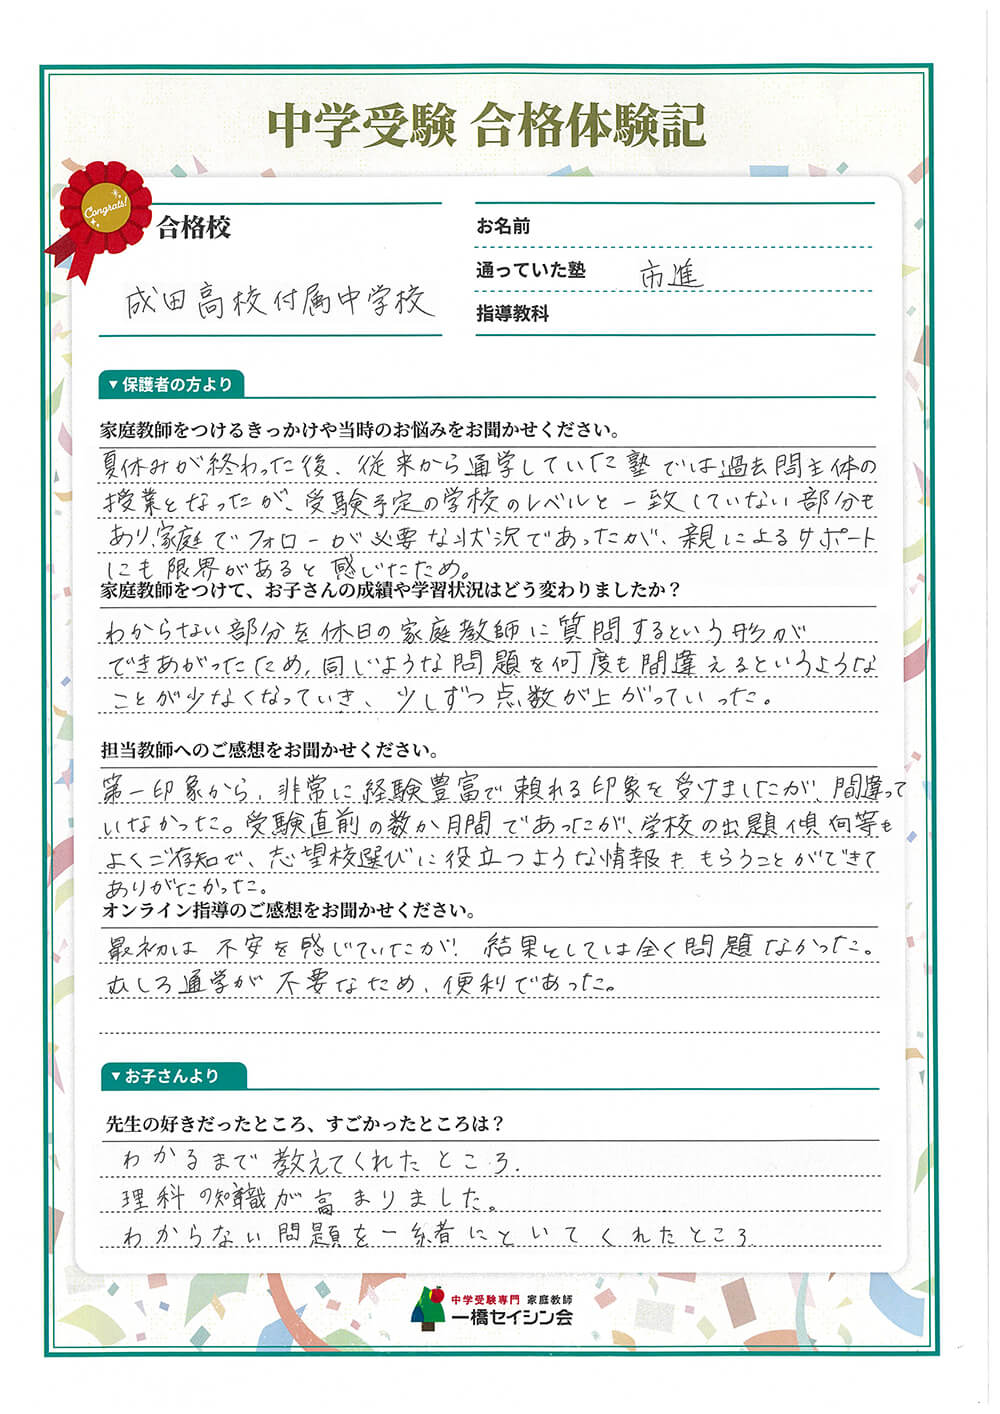 中学受験 合格体験記
Congrats!
合格校
成田高校付属中学校
お名前
通っていた塾 市進
指導教科
▼保護者の方より
家庭教師をつけるきっかけや当時のお悩みをお聞かせください。
夏休みが終わった後、従来から通学していた塾では過去問主体の
授業となったが、受験予定の学校のレベルと一致していない部分も
あり、家庭でフォローが必要な状況であったが、親によるサポート
にも限界があると感じたため。
家庭教師をつけて、お子さんの成績や学習状況はどう変わりましたか？
わからない部分を休日の家庭教師に質問するという形が
できあがったため、同じような問題を何度も間違えるというような
ことが少なくなっていき、少しずつ点数が上がっていった。
担当教師へのご感想をお聞かせください。
第一印象から、非常に経験豊富で頼れる印象を受けましたが、間違って
いなかった。受験直前の数か月間であったが、学校の出題傾向等も
よくご存知で、志望校選びに役立つような情報をもらうことができて
ありがたかった。
オンライン指導のご感想をお聞かせください。
最初は不安を感じていたが、結果としては全く問題なかった。
むしろ通学が不要なため、便利であった。
▼お子さんより
先生の好きだったところ、すごかったところは？
わかるまで教えてくれたところ.
理科の知識が高まりました。
わからない問題を一緒にといてくれたところ
中学受験専門 家庭教師
一橋セイシン会